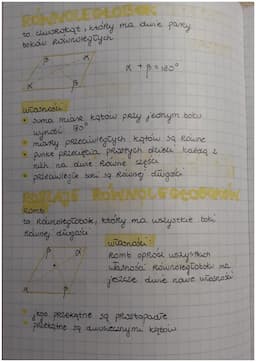 RÓWNOLEGŁOBOK
to czworokąt, który ma dwie pary
boków równoległych
β α
α β
α + β = 180°
własności:
• suma miar kątów przy jednym boku
wynosi
• miary przeciwległych kątów są równe
• punkt przecięcia prostych dzieli każdą z
nich na dwie równe części
• przeciwległe boki są równej długości
RODZAJE RÓWNOLEGŁOBOKÓW
Romb
to równoległobok, który ma wszystkie boki
równej długości
własności:
β α
α β
Romb oprócz wszystkich
własności równoległoboku ma
jeszcze dwie nowe własności:
• jego przekątne są prostopadłe
• przekątne są dwusiecznymi kątów